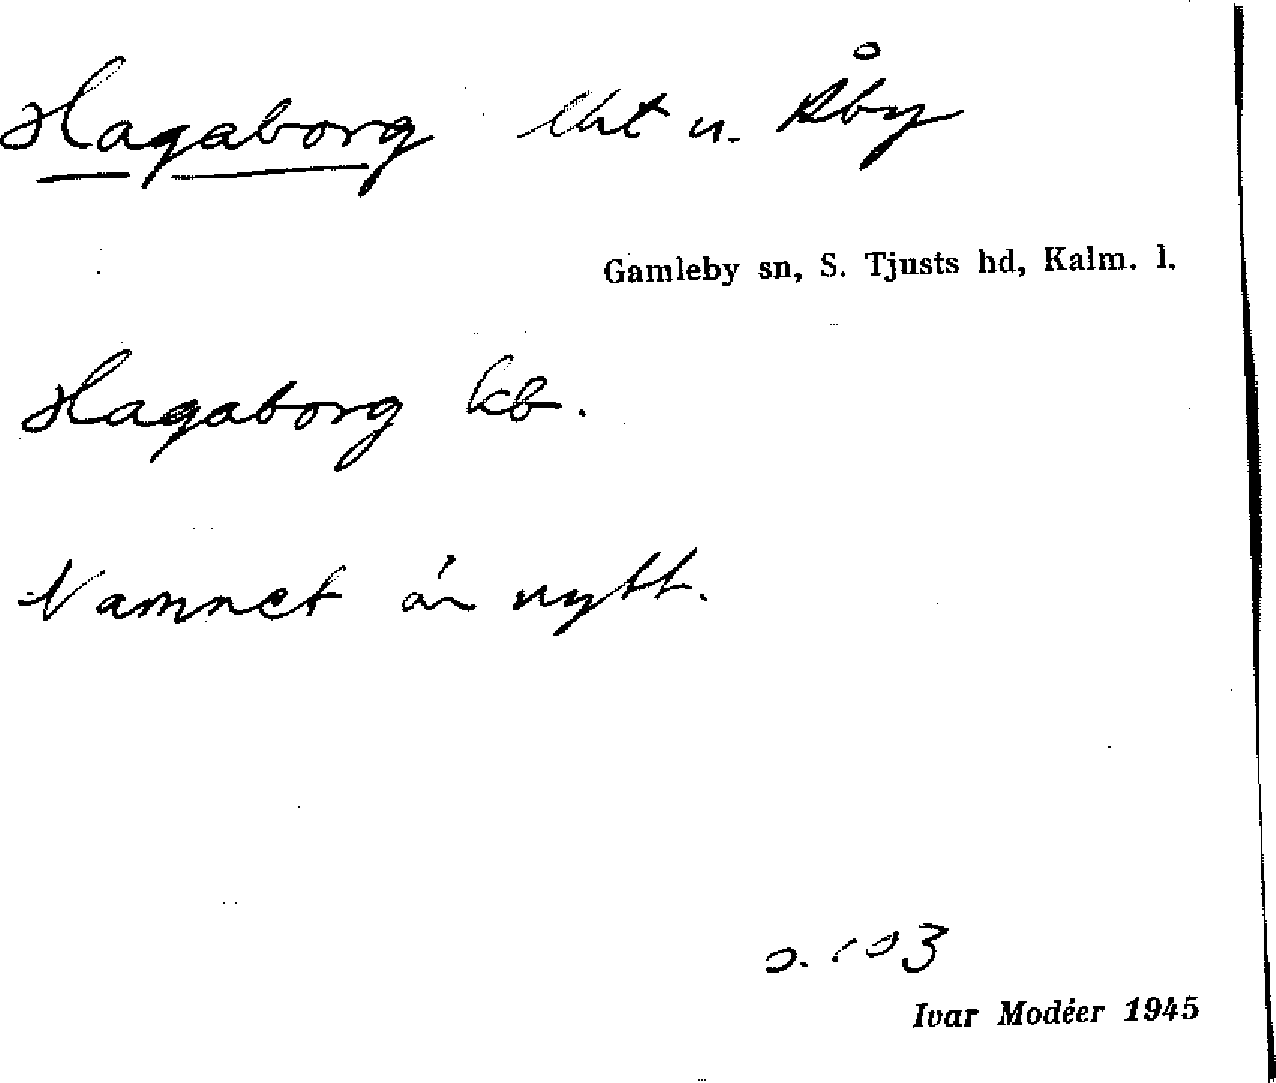 Hagaborg lht u. Åby
Gamleby sn, S. Tjusts hd, Kalm. l.
Hagaborg kb.
Namnet är nytt.
s. 103
Ivar Modéer 1945